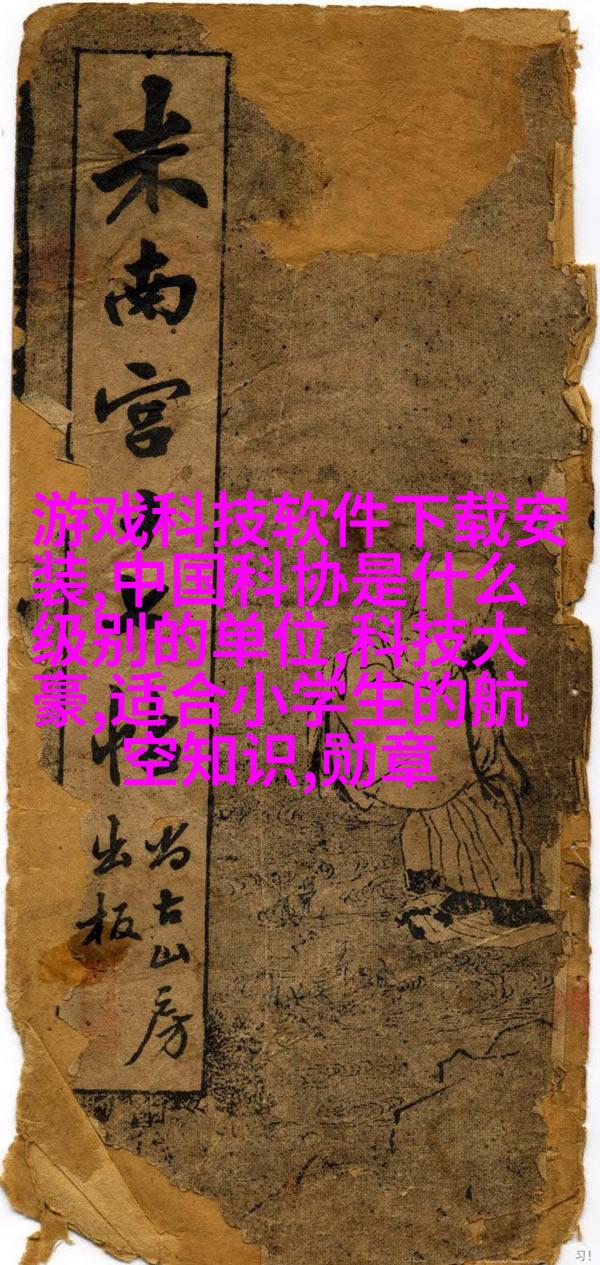 米南宫
尚古山房
出板
游戏科技软件下载安
装,中国科协是什么
级别的单位,科技大
豪,适合小学生的航
空知识,勋章
习!